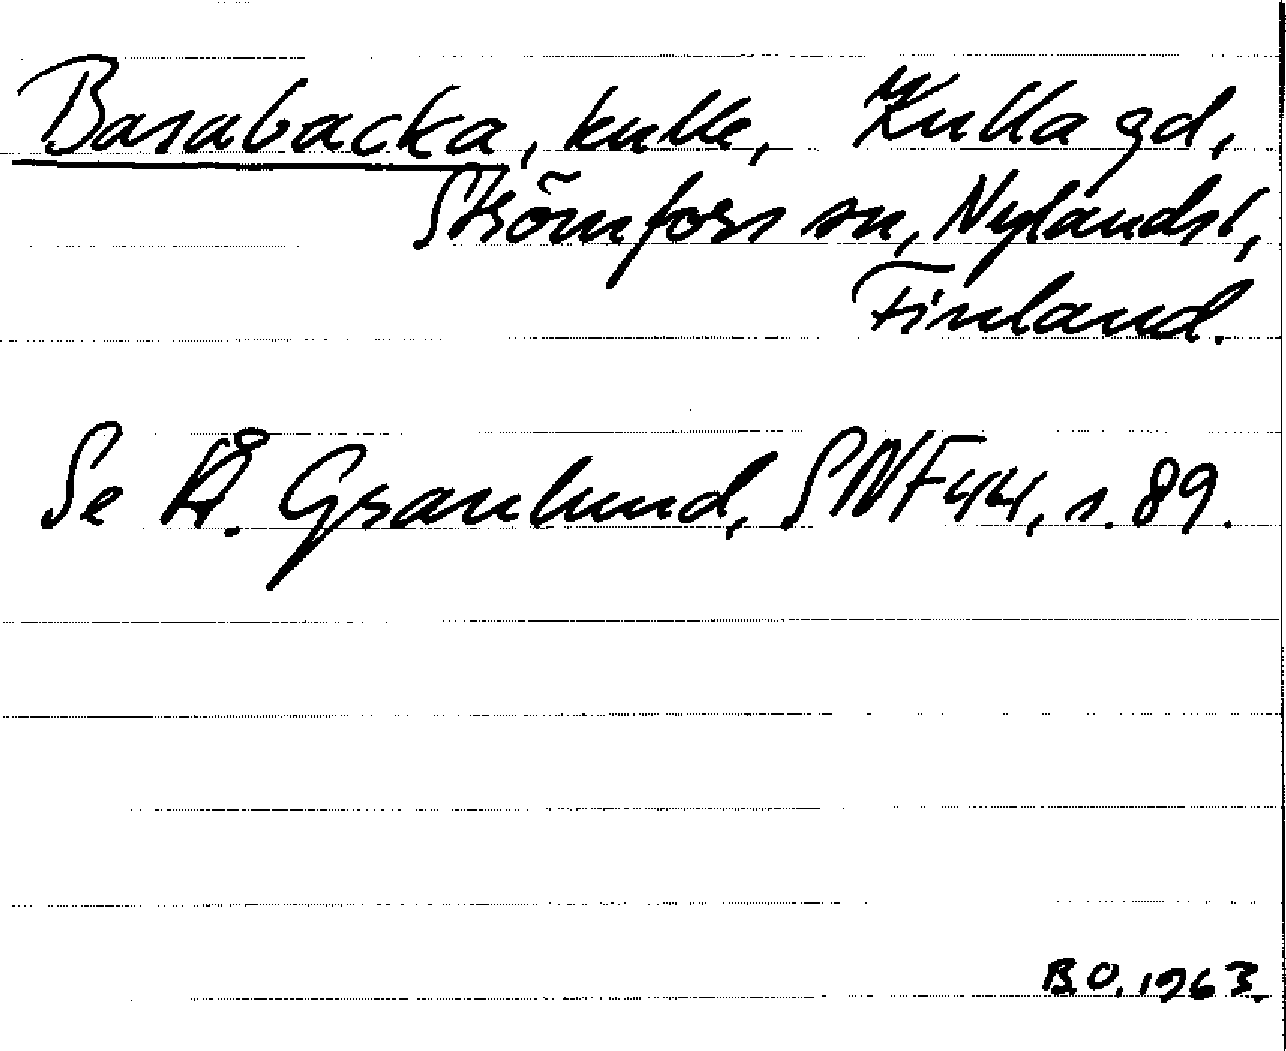 Basabacka, kulle, Kulla gd,
Strömfors sn, Nylands l,
Finland.
Se Å. Granlund, SNF 44, s. 89.
B.O. 1963.